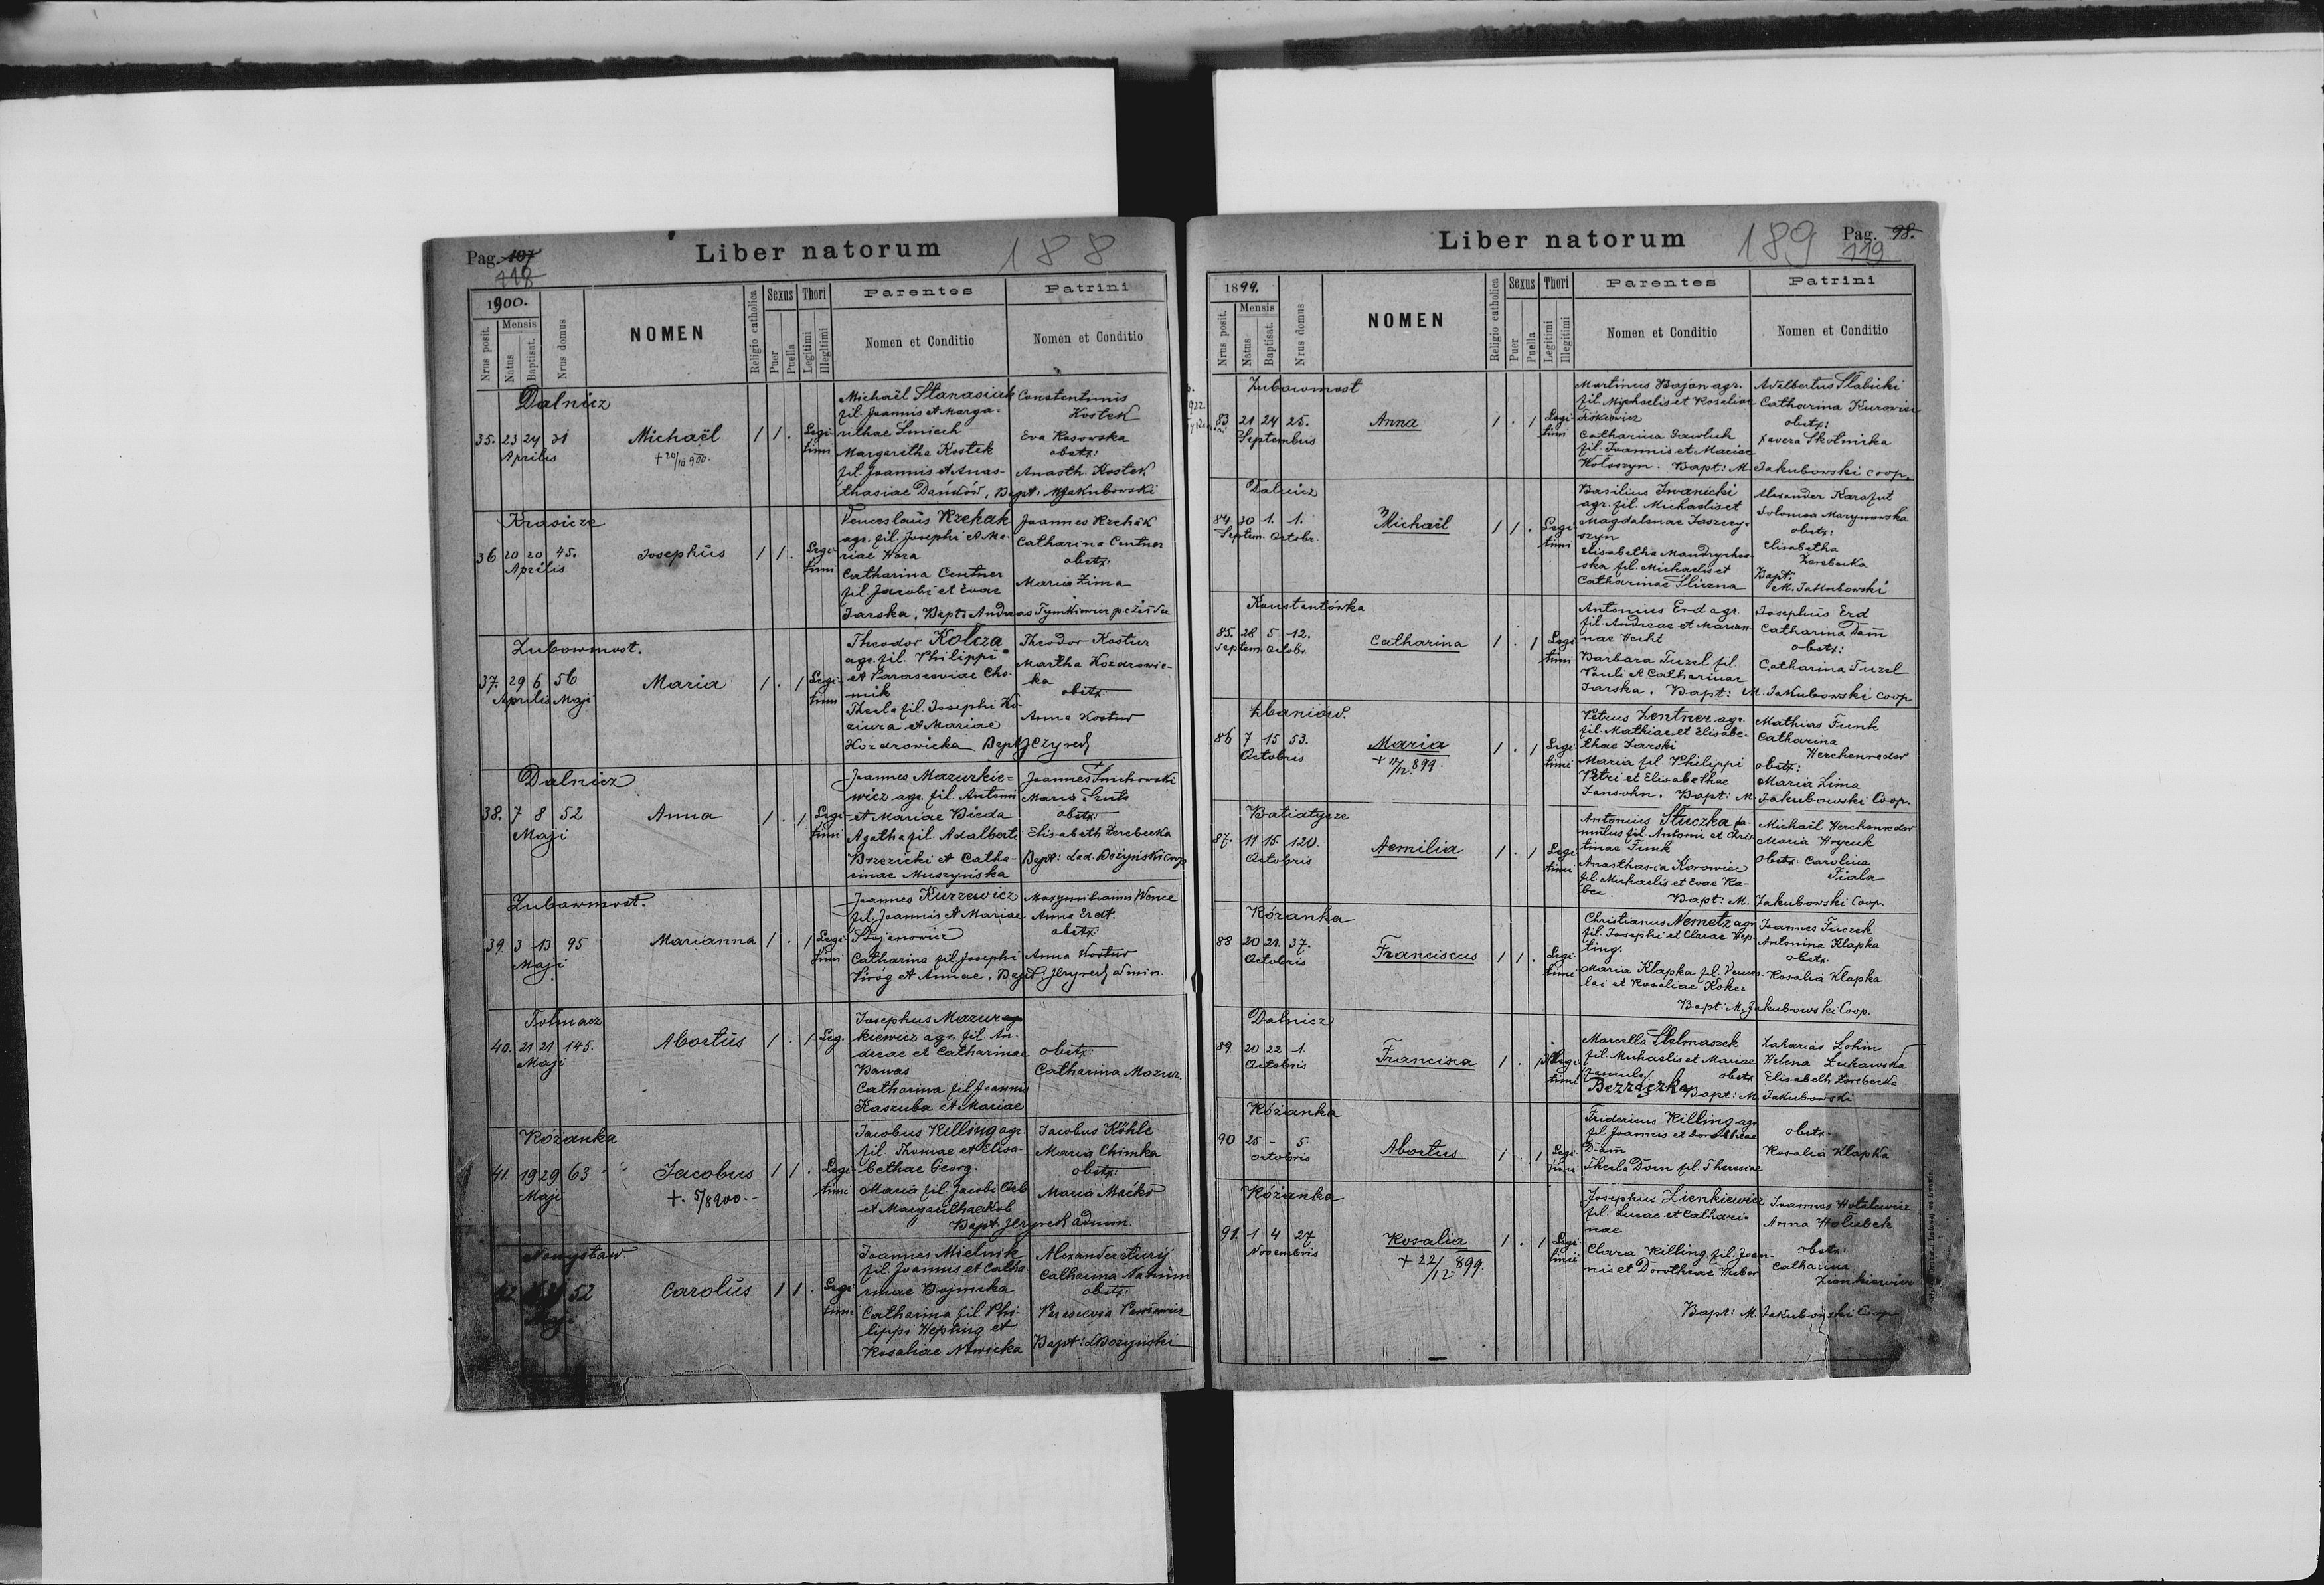 Pag. 107
118
Liber natorum
188
1900.
Nrus posit.
Mensis
Natus
Baptisat.
Nrus domus
NOMEN
Religio catholica
Sexus
Puer
Puella
Thori
Legitimi
Illegitimi
Parentes
Nomen et Conditio
Patrini
Nomen et Conditio
Dalnicz
35. 23 24 31
Aprilis
Michaël
+ 20/10 900.
1 1 .
Legi-
timi
Michaël Stanasiuk
fil. Joannis et Marga-
rithae Smiech
Margaretha Kostek
fil. Joannis et Anas-
thasiae Dańków, Bapt: M Jakubowski
Constentinus
Kostek
Eva Kosowska
obstx:
Anasth. Kostek
Krasicze
36 20 20 45.
Aprilis
Josephus
1 1 .
Legi-
timi
Venceslaus Rzehak
agr. fil. Josephi et Ma-
riae Hora
Catharina Centner
fil. Jacobi et Evae
Jarska. Bapt: Andreas Tymkiewicz
Joannes Rzehák
Catharina Centner
obstx:
Maria Zima
Zubowmost.
37. 29 6 56
Aprilis Maji
Maria
1 . 1
Legi-
timi
Theodor Kolcza
agr. fil. Philippi
et Parasceviae Cho-
mik
Thecla fil. Josephi Ko-
ziura et Mariae
Kozdrowicka Bapt J Czyrek
Theodor Kostur
Martha Kozdrowic-
ka
obstx.
Anna Kostur
Dalnicz
38. 7 8 52
Maji
Anna
1 . 1
Legi-
timi
Joannes Mazurkie=
wicz agr. fil. Antoni
et Mariae Bieda
Agatha fil. Adalberti
Brzezicki et Catha-
rinae Muszyńska
Joannes Smichowski
Maria
obstx:
Elisabeth Zerebecka
Bapt: Lad. Dożyński coop
Zubowmost.
39. 3 13 95
Maji
Marianna
1 . 1
Legi-
timi
Joannes Kurzewicz
fil. Joannis et Mariae
Stojanowicz
Catharina fil. Josephi
Piróg et Annae. Bapt J Czyrek admin.
Maxymilianus Wence
Anna Erdt.
obstx:
Anna Kostur
Tolmacz
40. 21 21 145.
Maji
Abortus
1 . 1
Leg.
Josephus Mazur
kiewicz agr. fil. An-
dreae et Catharinae
Banas
Catharina fil Joannis
Kaszuba et Mariae
obstx:
Catharina Mazur.
Różanka
41. 19 29 63
Maji
Jacobus
+. 5/8 900.-
1 1 .
Legi-
timi
Jacobus Killing agr.
fil. Thomae et Elisa-
bethae Georg.
Maria fil. Jacobi Oeb
et Margarithae Kolb
Bapt. J Czyrek admin.
Jacobus Köhle
Maria Chimka
obstx:
Maria Maćko
42. 52
Maji
Carolus
1 1 .
Legi-
timi
Joannes Mielnik
fil. Joannis et Catha-
rinae Bojnicka
Catharina fil Phi-
lippi Hepting et
Rosaliae Nowicka
Alexander Aurij
Catharina
obstx:
Parascevia Pawłowicz
Bapt: L Dozyński
Liber natorum
189
Pag. 98.
119
1899.
Nrus posit.
Mensis
Natus
Baptisat.
Nrus domus
NOMEN
Religio catholica
Sexus
Puer
Puella
Thori
Legitimi
Illegitimi
Parentes
Nomen et Conditio
Patrini
Nomen et Conditio
Zubowmost
83 21 24 25.
Septembris
Anna
1 . 1
Legi-
timi
Martinus Bajan agr.
fil. Michaelis et Rosaliae
Fiskiewicz
Catharina Pawluk
fil. Joannis et Mariae
Wołoszyn. Bapt: M Jakubowski coop.
Adalbertus Słabicki
Catharina Kurowicz
obstx:
Xavera Skotnicka
Dalnicz
84 30 1. 1.
Septem. Octobr.
Michaël
1 1 .
Legi-
timi
Basilius Iwanicki
agr. fil. Michaelis et
Magdalenae Jaszczy-
szyn
Elisabetha Mandrychow-
ska fil. Michaelis et
Catharinae Śliczna
Alexander Karafut
Solomea Marynowska
obstx:
Elisabetha
Zerebecka
Bapt:
M. Jakubowski
Konstantówka
85. 28 5 12.
Septem. Octobr.
Catharina
1 . 1
Legi-
timi
Antonius Erd agr.
fil. Andreae et Marian-
nae Hecht
Barbara Tuzel fil.
Pauli et Catharinae
Jarska. Bapt: M. Jakubowski coop
Josephus Erd
Catharina Dam̄
obstx:
Catharina Tuzel
Zbaniow.
86 7 15 53.
Octobris
Maria
+ 14/12. 899.
1 . 1
Legi-
timi
Petrus Zentner agr.
fil. Mathiae et Elisabe-
thae Jarski
Maria fil. Philippi
Petri et Elisabethae
Jansohn. Bapt: M. Jakubowski Coop.
Mathias Funk
Catharina
Herchenreder
obstx:
Maria Zima
Batiatycze
87. 11 15. 120
Octobris
Aemilia
1 . 1
Legi-
timi
Antonius Stuczka fa-
mulus fil. Antonii et Chris-
tinae Funk
Anasthasia Korowiec
fil Michaelis et Evae Ka-
ber
Bapt: M. Jakubowski Coop.
Michaël Herchenreder
Maria Hrycuk
obstx: Carolina
Fiala
Różanka
88 20 21. 37.
Octobris
Franciscus
1 1 .
Legi-
timi
Christianus Nemetz agr
fil. Josephi et Clarae Hep-
ting.
Maria Klapka fil. Vences-
lai et Rosaliae Koker
Bapt: M. Jakubowski Coop.
Joannes Fuczek
Antonina Klapka
obstx.
Rosalia Klapka
Dalnicz
89. 20 22 1.
Octobris
Francisca
1 . 1
Illegi-
timi
Marcella Stelmaszek
fil. Michaelis et Mariae
famula
Bezrączka Bapt: M Jakubowski
Zaharias Lohin
Helena Lukawska
obstx Elisabeth Zerebecka
Różanka
90 25 - 5.
Octobris
Abortus
1 . 1
Legi-
timi
Fridericus Killing agr
fil Joannis et Dorotheae
Dam̄
Thecla Dorn fil. Theresiae
obstx.
Rosalia Klapka
Różanka
91. 1 4 27
Novembris
Rosalia
+ 22/12. 899.
1 . 1
Legi-
timi
Josephus Zienkiewicz
fil. Lucae et Cathari-
nae
Clara Killing fil. Joan-
nis et Dorotheae Huber
Joannes
Anna Holubek
obstx:
Catharina
Zienkiewicz
Bapt: M Jakubowski Coop